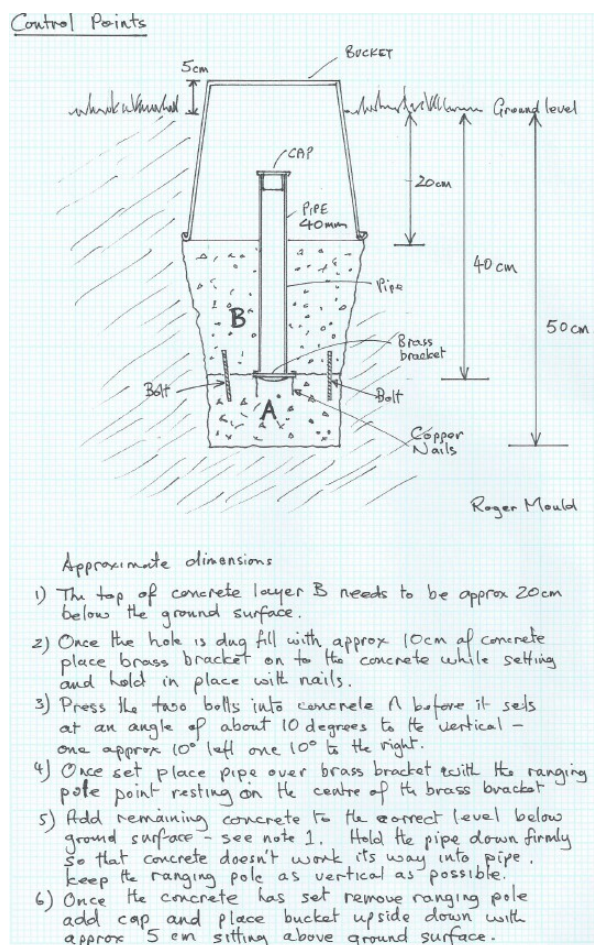 Control Points
BUCKET
5cm
Ground level
CAP
20cm
PIPE
40mm
40 cm
Pipe
B
50 cm
Brass
bracket
Bolt
Bolt
A
Copper
Nails
Roger Mould
Approximate dimensions
1) The top of concrete layer B needs to be approx 20cm
below the ground surface.
2) Once the hole is dug fill with approx 10cm of concrete
place brass bracket on to the concrete while setting
and hold in place with nails.
3) Press the two bolts into concrete A before it sets
at an angle of about 10 degrees to the vertical -
one approx 10° left one 10° to the right.
4) Once set place pipe over brass bracket with the ranging
pole point resting on the centre of the brass bracket
5) Add remaining concrete to the correct level below
ground surface - see note 1. Hold the pipe down firmly
so that concrete doesn't work its way into pipe.
keep the ranging pole as vertical as possible.
6) Once the concrete has set remove ranging pole
add cap and place bucket upside down with
approx 5 cm sitting above ground surface.